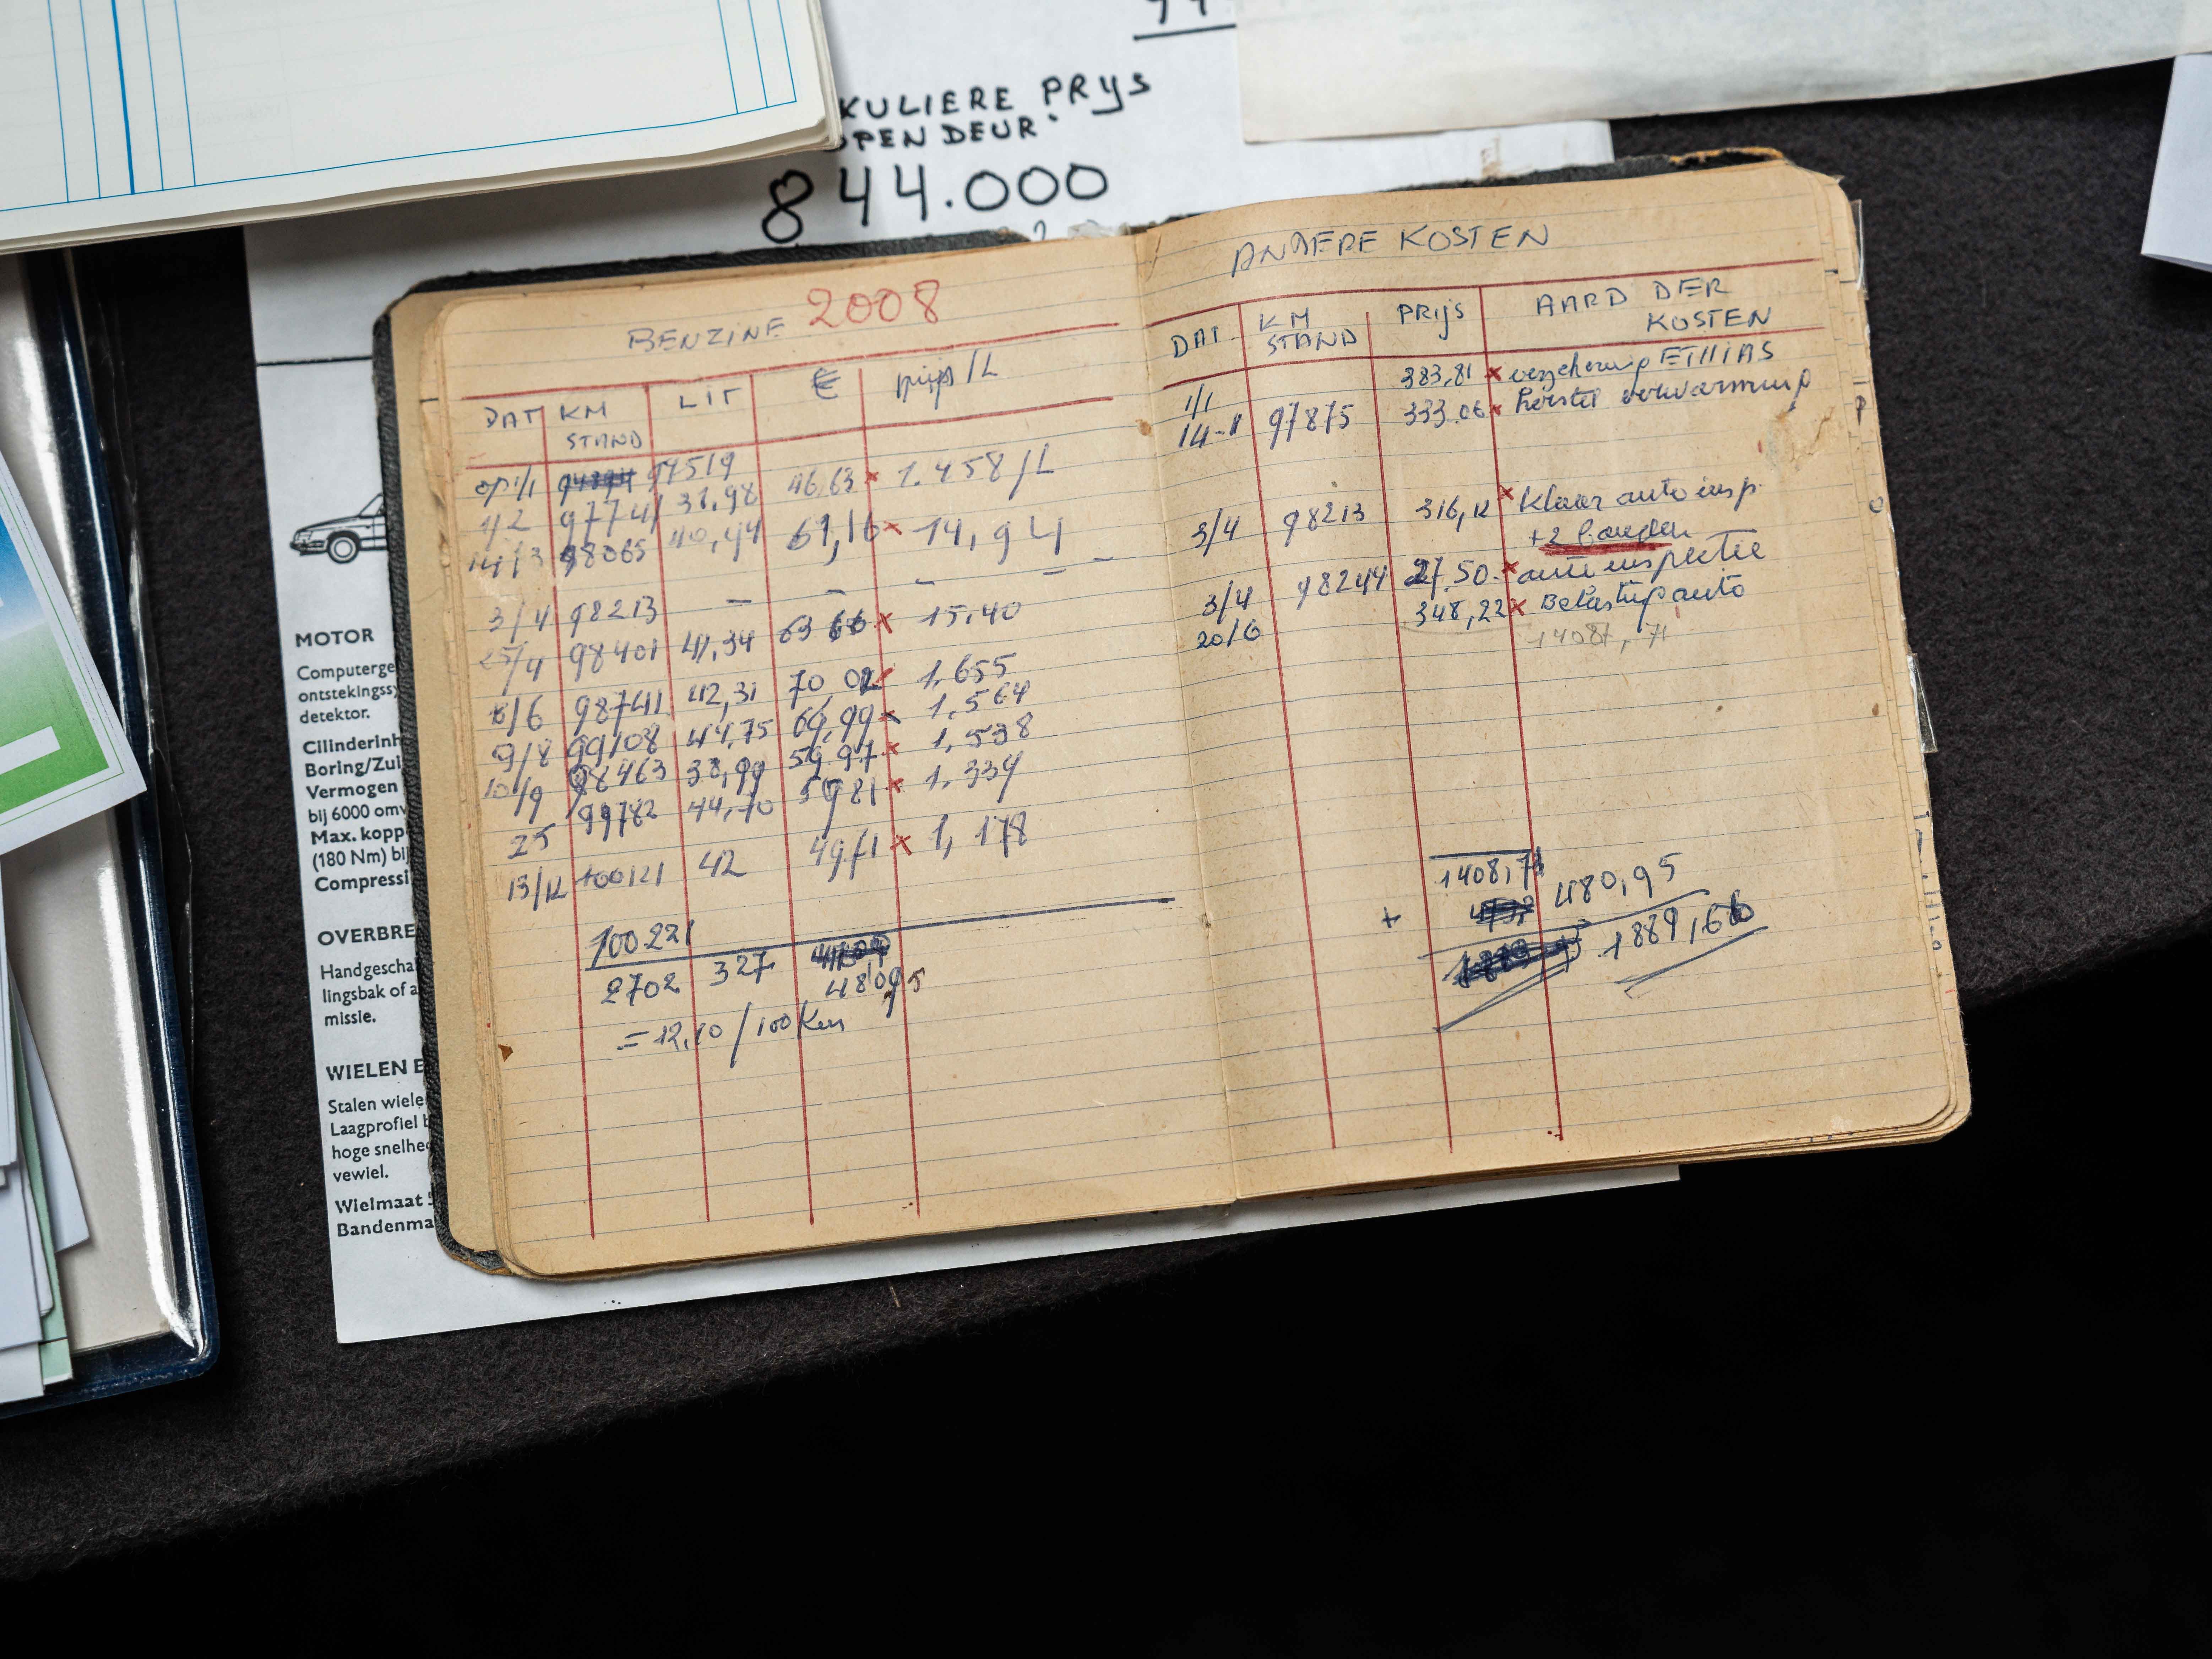 KULIERE PRYS
OPEN DEUR
844.000
BENZINE 2008
DAT KM STAND LIT € prijs/L
op 1/1 97519
1/2 97741 31,98 46,63 x 1.458/L
14/3 98065 40,94 61,16 x 14,94
3/4 98213 — — — — —
25/4 98401 41,34 63 66 x 15,40
8/6 98741 42,31 70,02 x 1,655
9/8 99108 44,75 69,99 x 1,564
10/9 38,99 59 97 x 1,538
25 99782 44,70 59 81 x 1.334
13/12 100121 42 49,71 x 1,178
100.221
2702 327 480,95
= 12,10 / 100 Km
ANDERE KOSTEN
DAT KM STAND PRIJS AARD DER KOSTEN
1/1 383,81 x verzekering ETHIAS
14-1 97875 333.06 x herstel verwarming
3/4 98213 316,12 x klaar auto insp.
+2 banden
3/4 98244 27.50 x auto inspectie
20/6 348,22 x Belasting auto
1408,71
1408,71
+ 480,95
1889,66
MOTOR
Computerge
ontstekingss
detektor.
Cilinderinh
Boring/Zui
Vermogen
bij 6000 omv
Max. kopp
(180 Nm) bij
Compressi
OVERBRE
Handgescha
lingsbak of a
missie.
WIELEN E
Stalen wiele
Laagprofiel b
hoge snelhe
vewiel.
Wielmaat 5
Bandenma